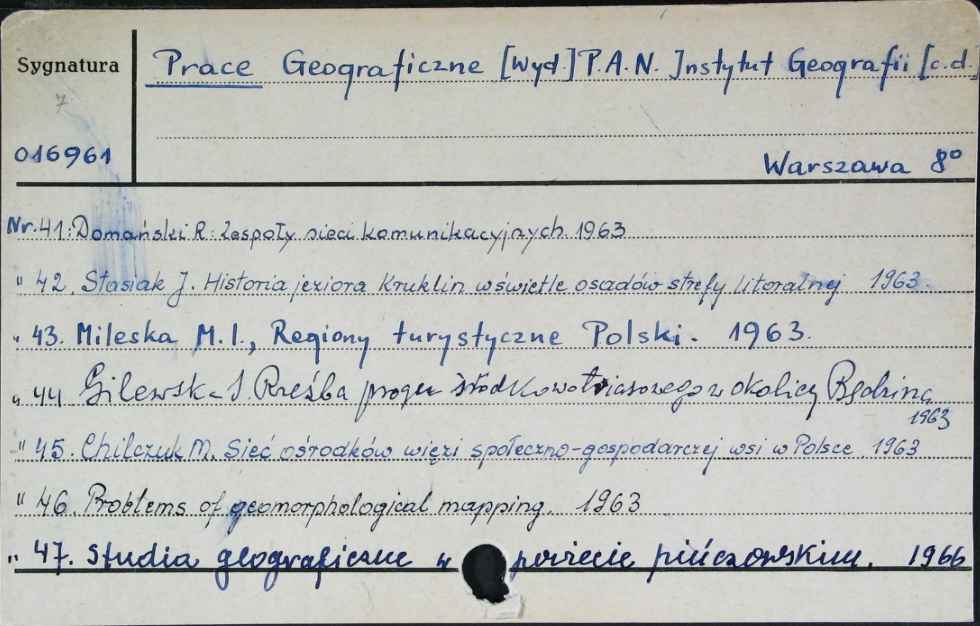 Sygnatura
Prace Geograficzne [Wyd] P.A.N. Instytut Geografii [c.d.
7
016961
Warszawa 8°
Nr. 41: Domański R: Zespoły sieci komunikacyjnych 1963
" 42. Stasiak J. Historia jeziora Kruklin w świetle osadów strefy litoralnej 1963.
" 43. Mileska M. I., Regiony turystyczne Polski. 1963.
" 44 Gilewska S. Rzeźba progu środkowotriasowego w okolicy Będzina
1963
" 45. Chilczuk M. Sieć ośrodków więzi społeczno-gospodarczej wsi w Polsce 1963
" 46. Problems of geomorphological mapping. 1963
" 47. Studia geograficzne w powiecie pińczowskim. 1966